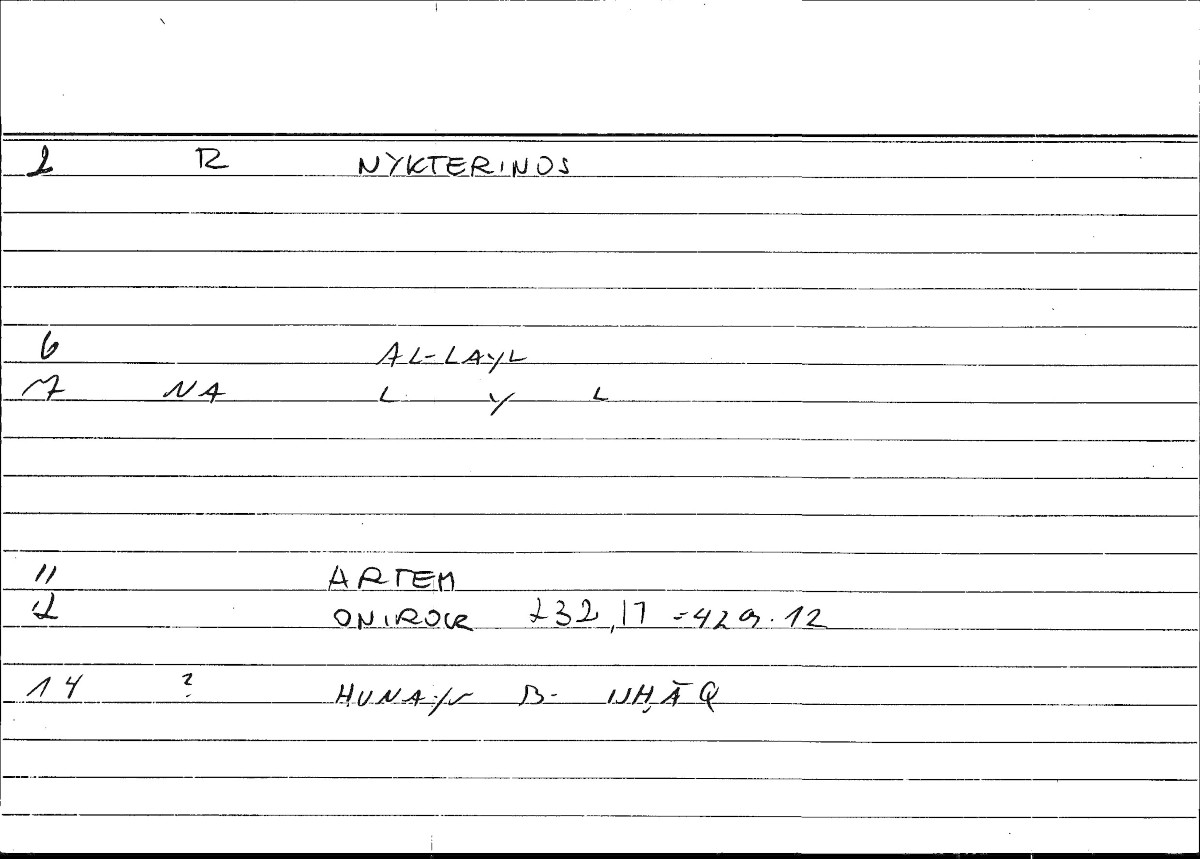 2 R NYKTERINOS
6 AL-LAYL
7 NA L Y L
11 ARTEM
2 ONIROCR 232,17 =429.12
14 ? HUNAYN B- ISḤĀQ